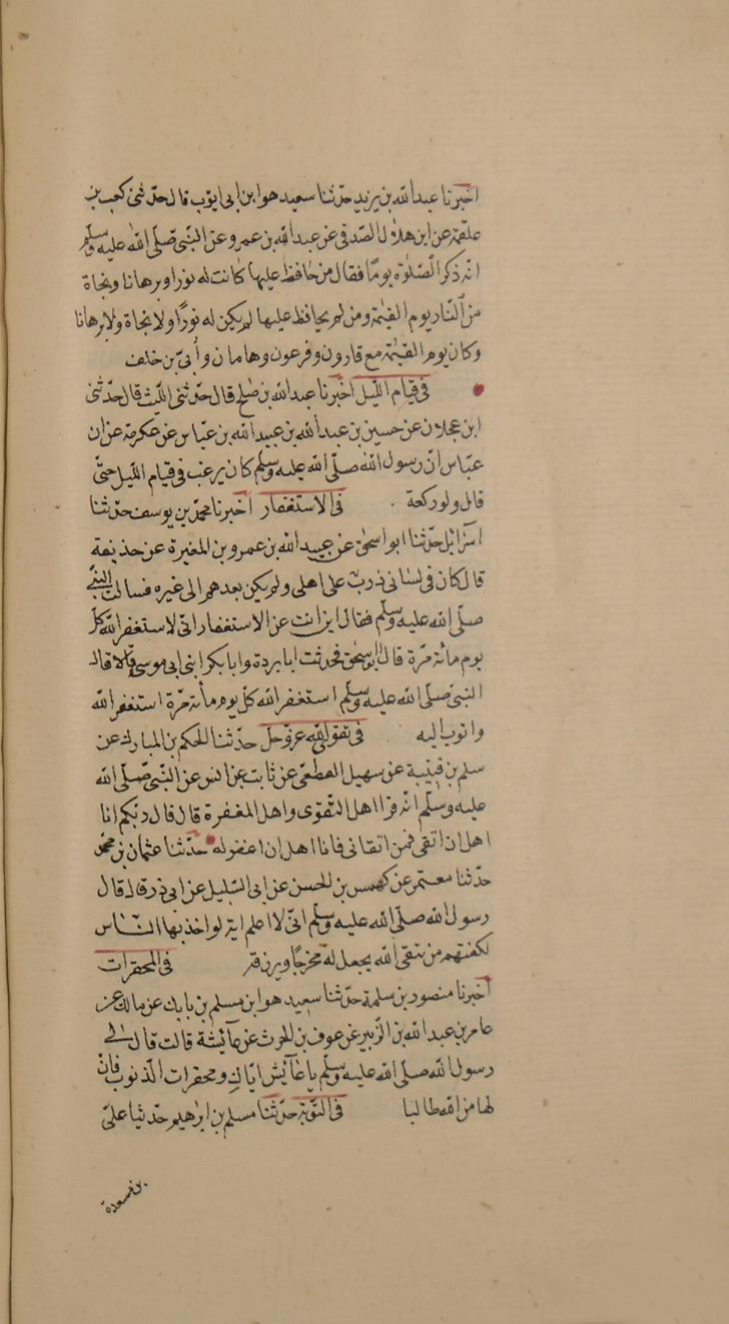 اخبرنا عبدالله بن يزيد حدثنا سعيد هو ابن ابى ايوب قال حدثنى كعب بن
علقمة عن ابن هلال الصدفى عن عبدالله بن عمرو عن النبى صلى الله عليه وسلم
انه ذكر الصلوة يوما فقال من حافظ عليها كانت له نورا وبرهانا ونجاة
من النار يوم القيمة ومن لم يحافظ عليها لم يكن له نورا ولا نجاة ولا برهانا
وكان يوم القيمة مع قارون وفرعون وهامان وأبى بن خلف
فى قيام الليل اخبرنا عبدالله بن صلح قال حدثنى الليث قال حدثنى
ابن عجلان عن حسين بن عبدالله بن عبيد الله بن عباس عن عكرمة عن ابن
عباس ان رسول الله صلى الله عليه وسلم كان يرغب فى قيام الليل حتى
قال ولو ركعة . فى الاستغفار اخبرنا محمد بن يوسف حدثنا
اسرائل حدثنا ابو اسحق عن عبيد الله بن عمرو بن المغيرة عن حذيفة
قال كان فى لسانى ذرب على اهلى ولم يكن بعدهم الى غيره فسالت النبى
صلى الله عليه وسلم فقال اين انت عن الاستغفار انى لاستغفر الله كل
يوم مائة مرة قال ابو اسحق فحدثت ابا بردة وابا بكر ابنى ابى موسى قالا قال
النبى صلى الله عليه وسلم استغفر الله كل يوم مأئة مرة استغفر الله
واتوب اليه فى تقوى الله عز وجل حدثنا الحكم بن المبارك عن
سلم بن قتيبة عن سهيل القطعى عن ثابت عن انس عن النبى صلى الله
عليه وسلم انه قرا اهل التقوى واهل المغفرة قال قال ربكم انا
اهل ان اتقى فمن اتقانى فانا اهل ان اغفر له حدثنا عثمان بن محمد
حدثنا معتمر عن كهمس بن الحسن عن ابى السليل عن ابى ذر قال قال
رسول الله صلى الله عليه وسلم انى لا اعلم اية لو اخذ بها الناس
لكفتهم من يتقى الله يجعل له مخرجا ويرزقه فى المحقرات
اخبرنا منصور بن سلمة حدثنا سعيد هو ابن مسلم بن بابك عن مالك عن
عامر بن عبدالله بن الزبير عن عوف بن الحرث عن عآئيشة قالت قال لى
رسول الله صلى الله عليه وسلم يا عآيش اياك ومحقرات الذنوب فان
لها من الله طالبا فى التوبة حدثنا مسلم بن ابرهيم حدثنا على
بن مسعدة